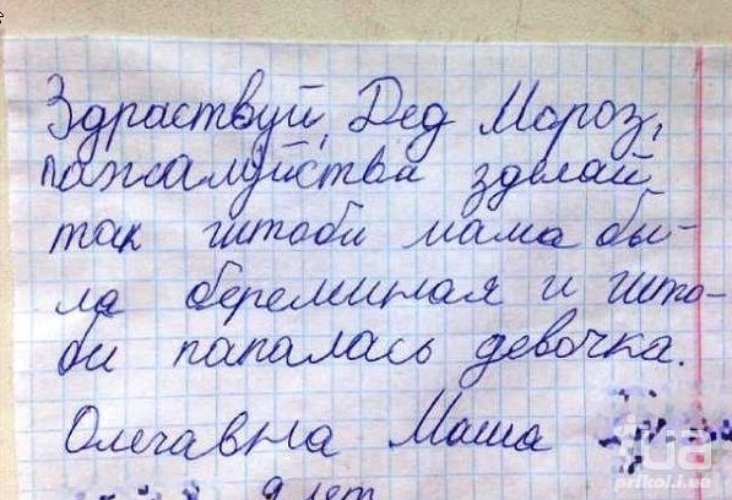 Здраствуй, Дед Мороз,
пажалуйства зделай
так штоби мама бы-
ла береминая и што-
би папалась девочка.
Олечавна Маша
9 лет
i.ua
prikol.i.ua